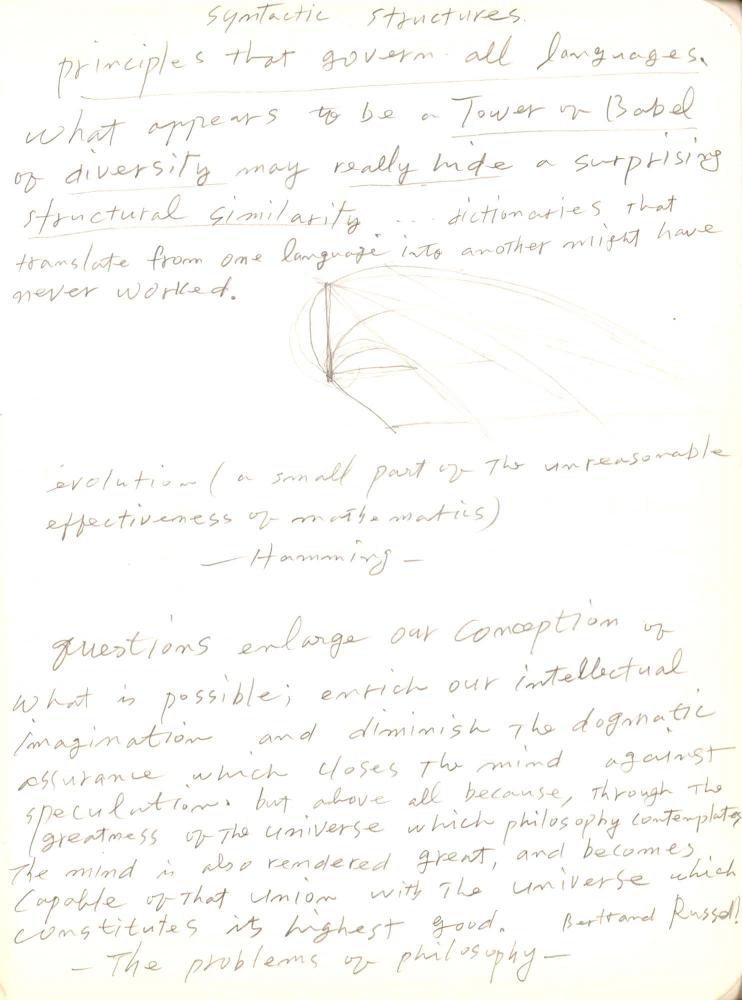 syntactic structures.
principles that govern all languages.
What appears to be a Tower of Babel
of diversity may really hide a surprising
structural similarity ... dictionaries that
translate from one language into another might have
never worked.
evolution (a small part of the unreasonable
effectiveness of mathematics)
— Hamming —
questions enlarge our conception of
what is possible; enrich our intellectual
imagination and diminish the dogmatic
assurance which closes the mind against
speculation. but above all because, through the
greatness of the universe which philosophy contemplates
the mind is also rendered great, and becomes
capable of that union with the universe which
constitutes its highest good. Bertrand Russell
— The problems of philosophy —